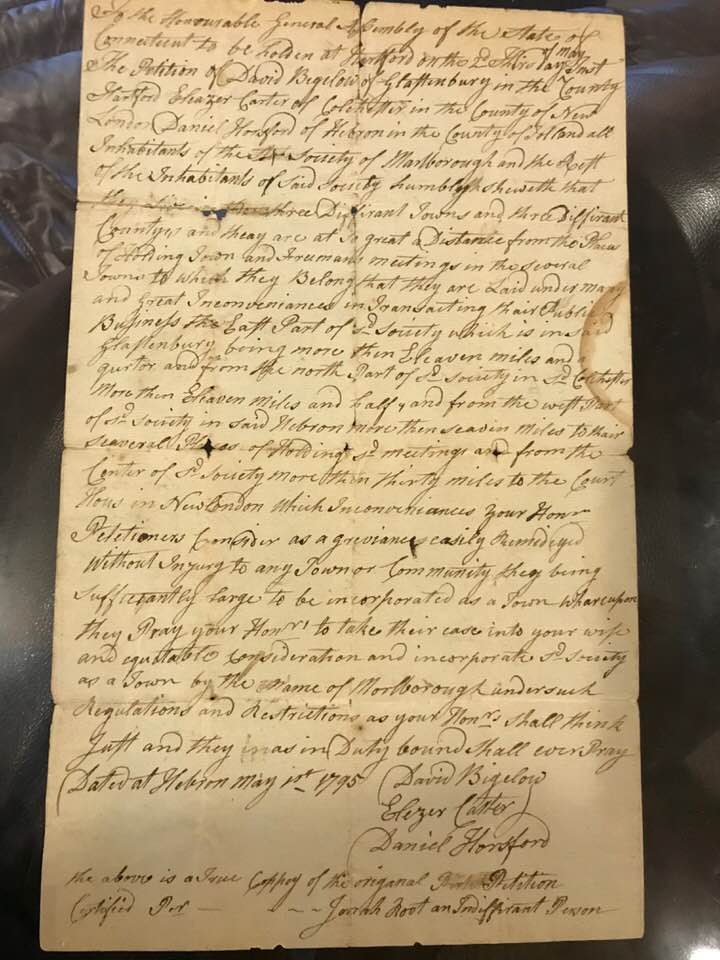 To the Honourable General Assembly of the State of
Connecticut to be holden at Hartford on the 2d Thirs day of may Inst
The Petition of David Bigelow of Glastenbury in the County
Hartford Eleazer Carter of Colchester in the County of New
London Daniel Horsford of Hebron in the County of Tolland all
Inhabitants of the Society of Marlborough and the Rest
of the Inhabitants of Said Society humbly sheweth that
they in three Diffirant Towns and three diffirant
Countys and theay are at So great a Distance from the Places
of Holding Town and Freemans meetings in the several
Towns to which they Belong that they are Laid under many
and Great Inconveniances in Transacting thair Public
Business the East Part of sd Society which is in said
Glastenbury being more then Eleaven miles and a
qurtor and from the north Part of sd Society in sd Colchester
More then Eleaven miles and half, and from the west Part
of sd Society in said Hebron more then seavin miles to thair
seaveral Places of Holding sd meetings and from the
Center of sd Society more then thirty miles to the Court
Hous in New London Which Inconveniances your Honrs
Petetioners Consider as a greviance easily Remideyed
Without Injurg to any Town or Community they being
Sufficantly Large to be incorporated as a Town whareupon
they Pray your Honrs to take their case into your wise
and equitable Consideration and incorporate sd Society
as a Town by the Name of Morlborough under such
Regulations and Restrictions as your Honrs shall think
Just and they in as in Duty bound Shall ever Pray
Dated at Hebron May 1st 1795 David Bigelow
Elezer Carter
Daniel Horsford
the above is a True Coppey of the origanal Petition
Certified Per - - - Josiah Root an Indiffirant Person